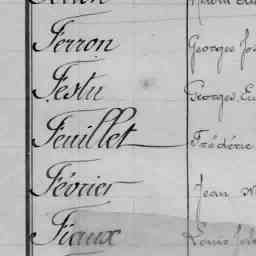 Ferron Georges Jos
Festu Georges, Eu
Feuillet Frédéric
Février Jean
Fiaux Louis Jul